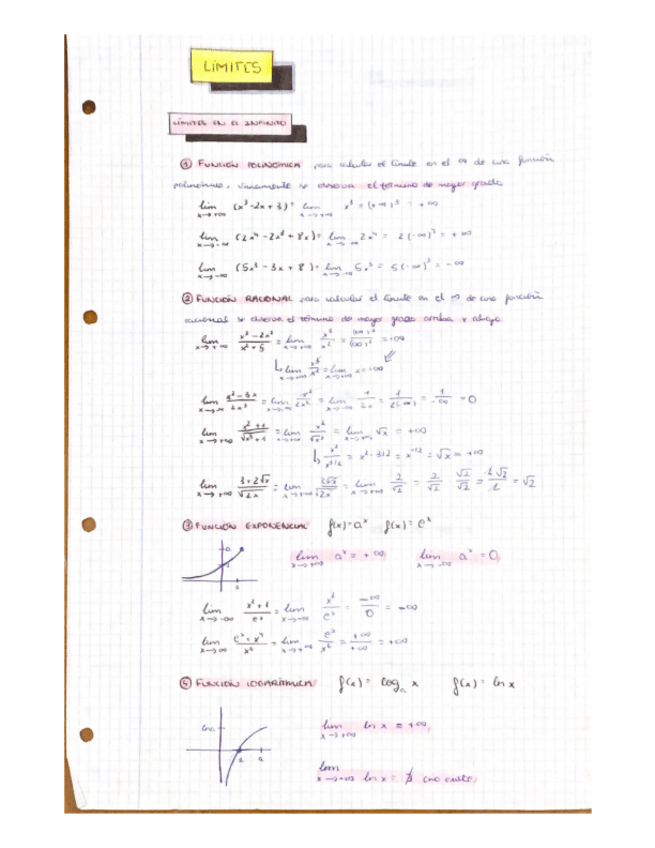 LÍMITES
LÍMITES EN EL INFINITO
① FUNCIÓN POLINÓMICA para calcular el límite en el ∞ de una función
polinómica, únicamente se observa el término de mayor grado
lim x→+∞ (x³-2x+3) = lim x→+∞ x³ = (+∞)³ = +∞
lim x→-∞ = lim x→-∞ 2x⁴ = 2(-∞)⁴ = +∞
lim x→-∞ (5x³-3x+8) = lim x→-∞ 5x³ = 5(-∞)³ = -∞
② FUNCIÓN RACIONAL para calcular el límite en el ∞ de una función
racional se observa el término de mayor grado arriba y abajo
lim x→+∞ = lim x→+∞ = +∞
lim x→+∞ = lim x→+∞ x = +∞
lim x→-∞ = lim x→-∞ = lim x→-∞ = 1/-∞ = 0
lim x→+∞ = lim x→+∞ = lim x→+∞ √x = +∞
= √x = +∞
lim x→+∞ (3+2√x)/√2x = lim x→+∞ 2√x/√2x = lim x→+∞ 2/√2 = 2/√2 · √2/√2 = 2√2/2 = √2
③ FUNCIÓN EXPONENCIAL f(x)=aˣ f(x)=eˣ
lim x→+∞ aˣ = +∞ lim x→-∞ aˣ = 0
lim x→-∞ = lim x→-∞ x²/eˣ = = -∞
lim x→∞ = lim x→+∞ = +∞/+∞ = +∞
④ FUNCIÓN LOGARÍTMICA f(x) = logₐ x f(x) = ln x
lim x→+∞ ln x = +∞
lim x→-∞ ln x = ∄ (no existe)